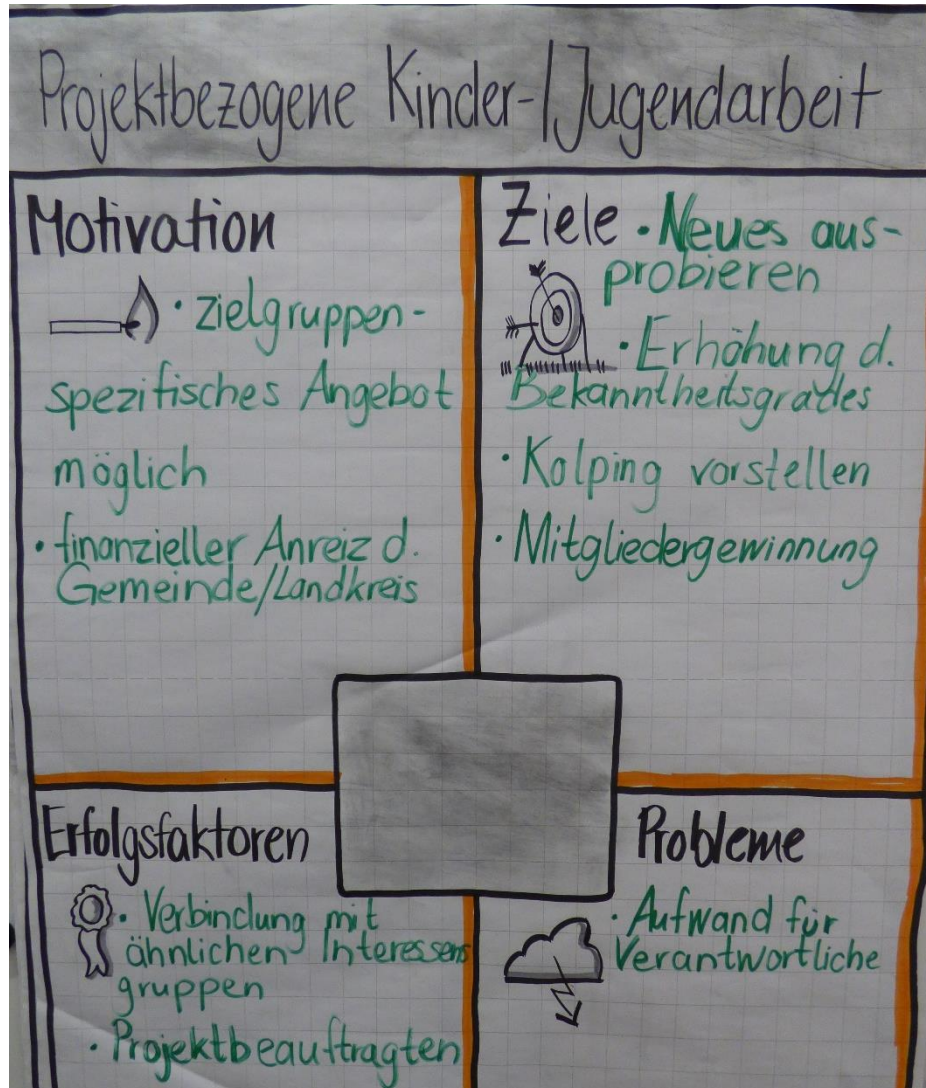 Projektbezogene Kinder-/Jugendarbeit
Motivation
• zielgruppen-
spezifisches Angebot
möglich
• finanzieller Anreiz d.
Gemeinde/Landkreis
Ziele • Neues aus-
probieren
• Erhöhung d.
Bekanntheitsgrades
• Kolping vorstellen
• Mitgliedergewinnung
Erfolgsfaktoren
• Verbindung mit
ähnlichen Interessens
gruppen
• Projektbeauftragten
Probleme
• Aufwand für
Verantwortliche